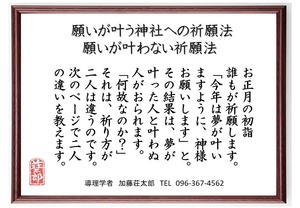 願いが叶う神社への祈願法
願いが叶わない祈願法
お正月の初詣
誰もが祈願します。
「今年は夢が叶い
ますように、神様
お願いします」と。
その結果は、夢が
叶った人と叶わぬ
人がおられます。
「何故なのか？」
それは、祈り方が
二人は違うのです。
次のページで二人
の違いを教えます。
導理学者 加藤荘太郎 TEL 096-367-4562